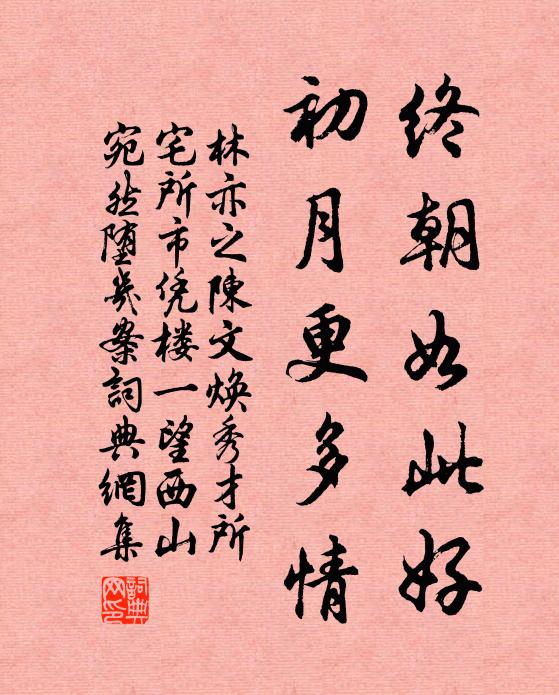 终朝如此好
初月更多情
林亦之陳文焕秀才所
宅所市凭楼一望西山
宛然堕几案詞典網集
詞典网印